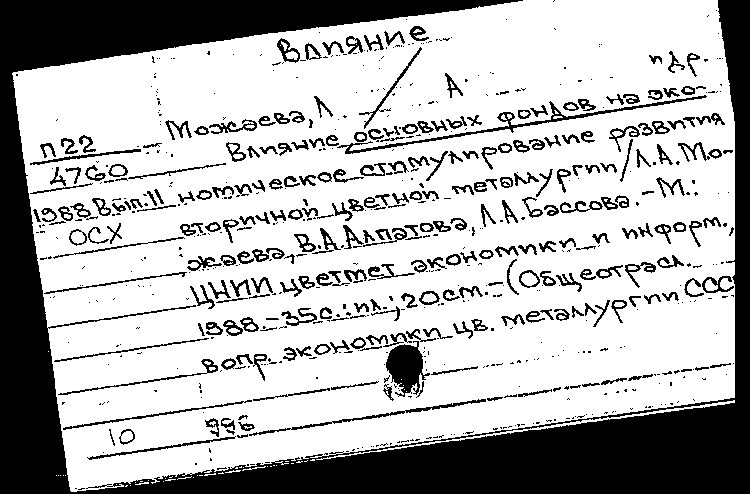 Влияние
Можаева, Л. А. и др.
П22
4760
1988 Вып. 11
ОСХ
Влияние основных фондов на эко-
номическое стимулирование развития
вторичной цветной металлургии / Л.А. Мо-
жаева, В.А. Алпатова, Л.А. Бассова. – М.:
ЦНИИ цветмет экономики и информ.,
1988. – 35с. : ил.; 20см. – (Общеотрасл.
вопр. экономики цв. металлургии СССР
10
996